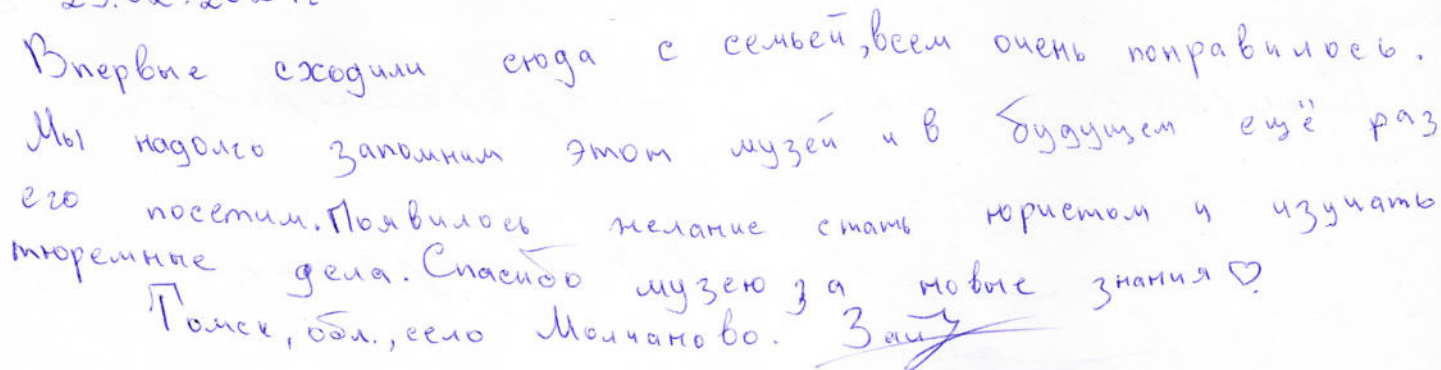 Впервые сходили сюда с семьей, всем очень понравилось.
Мы надолго запомним этот музей и в будущем ещё раз
его посетим. Появилось желание стать юристом и изучать
тюремные дела. Спасибо музею за новые знания ♡
Томск, обл., село Молчаново.